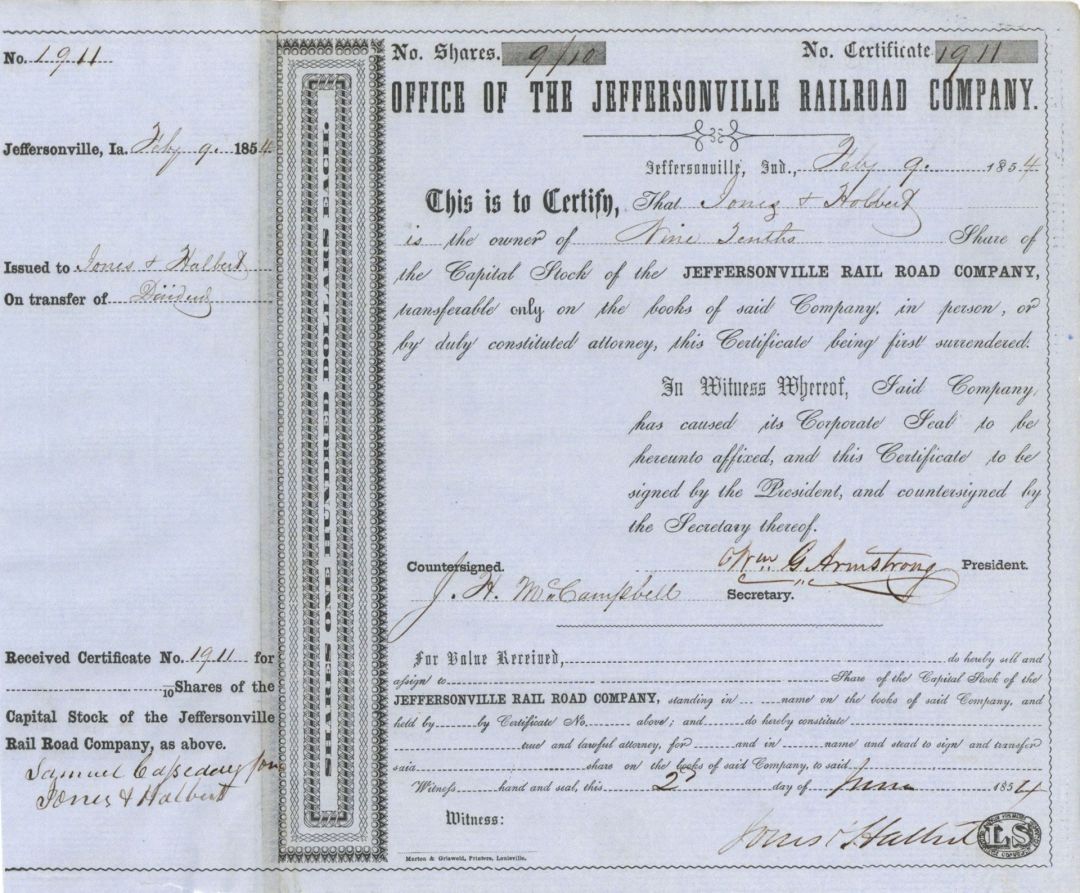 No. 1911
Jeffersonville, Ia. Feby 9. 1854
Issued to Jones & Halbert
On transfer of Dividend
Received Certificate No. 1911 for
/10 Shares of the
Capital Stock of the Jeffersonville
Rail Road Company, as above.
Samuel Casseday for
Jones & Halbert
SHARES ONE HUNDRED DOLLARS EACH.
No. Shares. 9/10 No. Certificate 1911
OFFICE OF THE JEFFERSONVILLE RAILROAD COMPANY.
Jeffersonville, Ind., Feby 9. 1854
This is to Certify, That Jones & Holbert
is the owner of Nine Tenths Share of
the Capital Stock of the JEFFERSONVILLE RAIL ROAD COMPANY,
transferable only on the books of said Company, in person, or
by duly constituted attorney, this Certificate being first surrendered.
In Witness Whereof, Said Company,
has caused its Corporate Seal to be
hereunto affixed, and this Certificate to be
signed by the President, and countersigned by
the Secretary thereof.
Wm G Armstrong President.
Countersigned.
J. H. McCampbell Secretary.
For Value Received, do hereby sell and
assign to Share of the Capital Stock of the
JEFFERSONVILLE RAIL ROAD COMPANY, standing in name on the books of said Company, and
held by by Certificate No. above; and do hereby constitute
true and lawful attorney, for and in name and stead to sign and transfer
said share on the books of said Company, to said
Witness hand and seal, this 2d day of June 1854
Witness:
Jones & Halbert
LS
Morton & Griswold, Printers, Louisville.